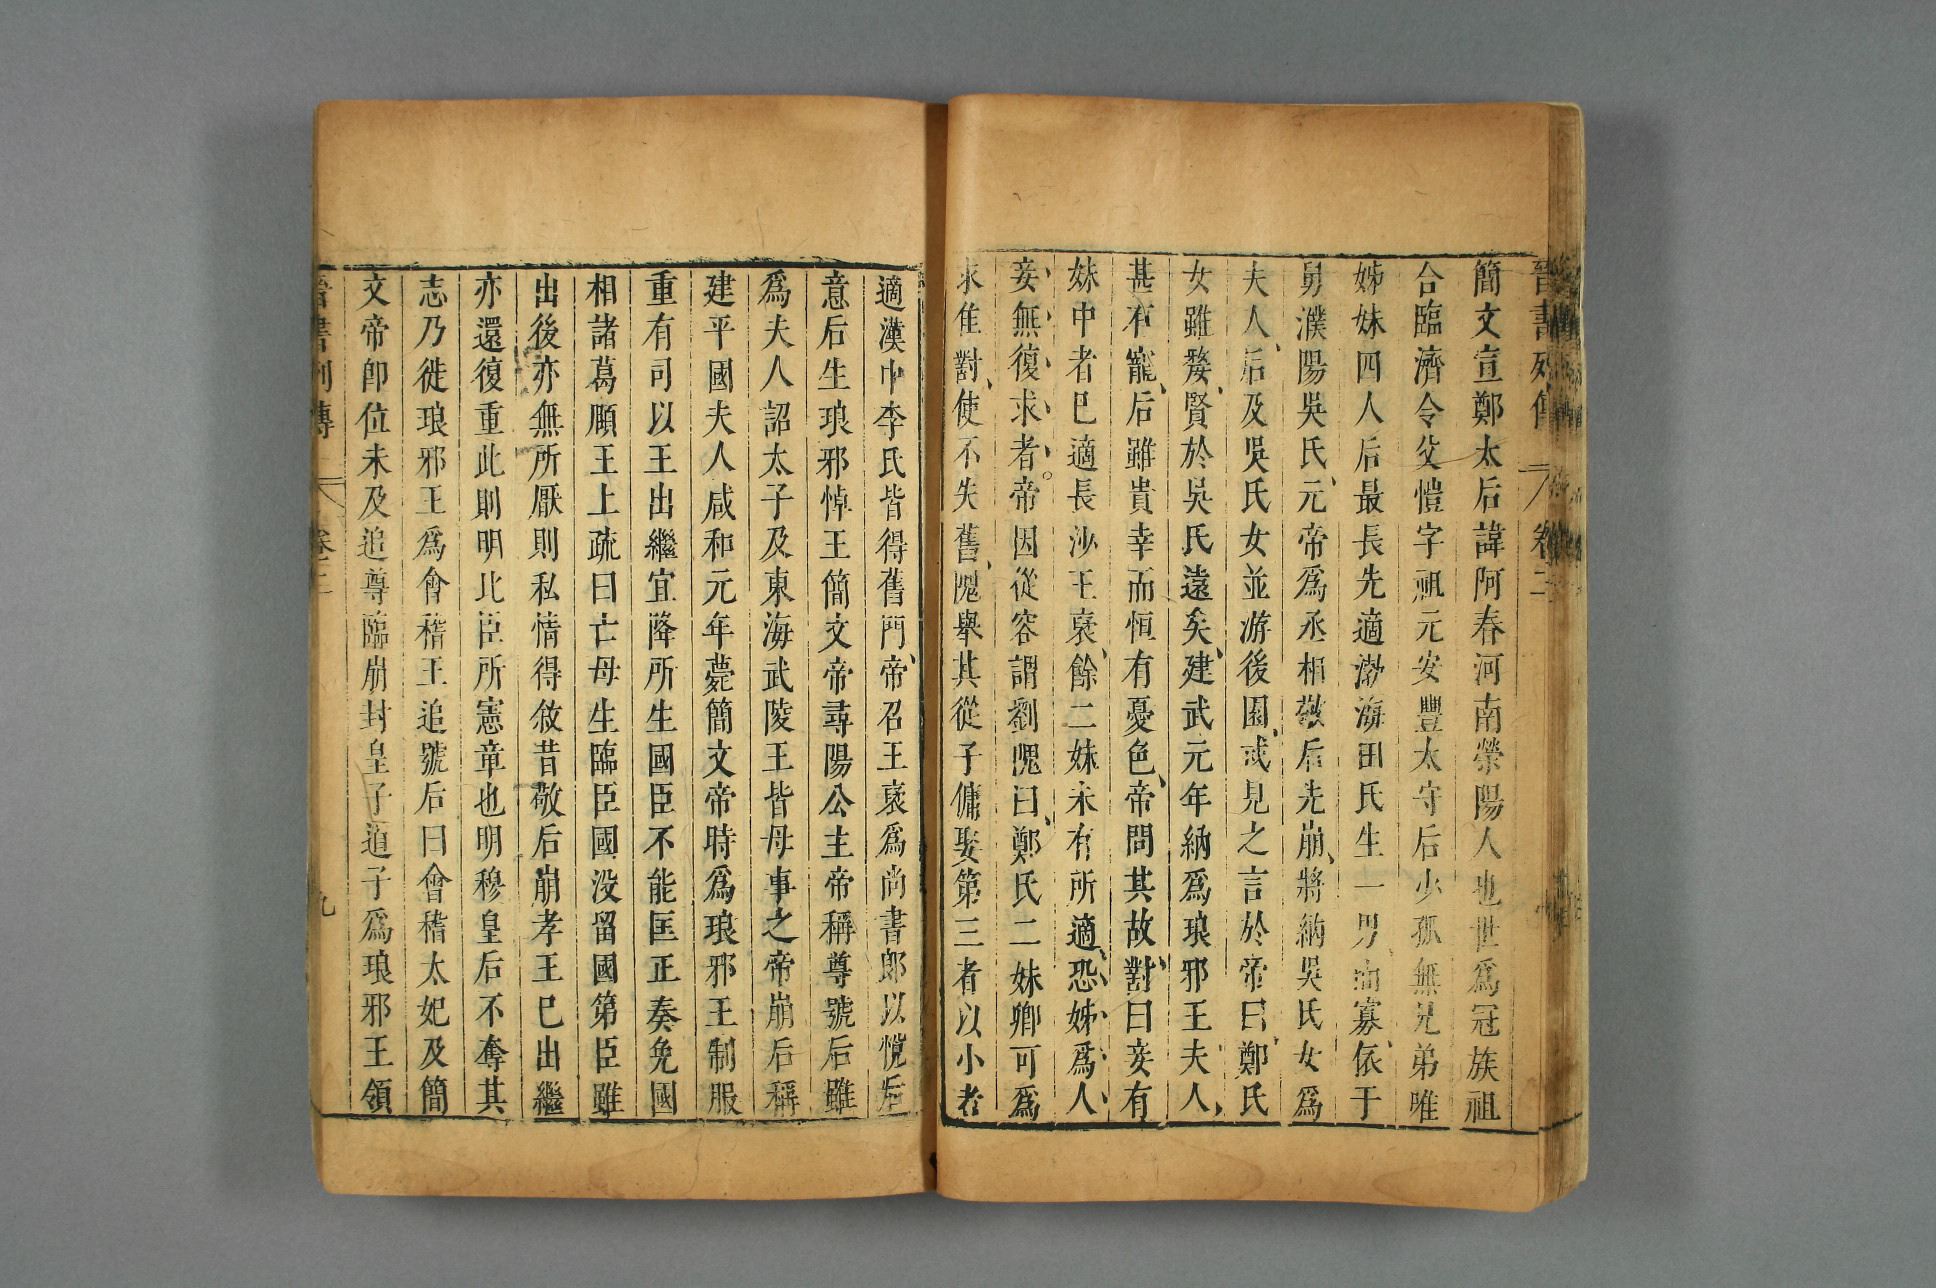 晉書列傳 卷二
簡文宣鄭太后諱阿春河南滎陽人也世爲冠族祖
合臨濟令父愷字祖元安豐太守后少孤無兄弟唯
姊妹四人后最長先適渤海田氏生一男而寡依于
舅濮陽吳氏元帝爲丞相敬后先崩將納吳氏女爲
夫人后及吳氏女並游後園或見之言於帝曰鄭氏
女雖嫠賢於吳氏遠矣建武元年納爲琅邪王夫人
甚有寵后雖貴幸而恒有憂色帝問其故對曰妾有
妹中者已適長沙王裒餘二妹未有所適恐姊爲人
妾無復求者帝因從容謂劉隗曰鄭氏二妹卿可爲
求佳對使不失舊隗舉其從子傭娶第三者以小者
適漢中李氏皆得舊門帝召王裒爲尚書郎以悅后
意后生琅邪悼王簡文帝尋陽公主帝稱尊號后雖
爲夫人詔太子及東海武陵王皆母事之帝崩后稱
建平國夫人咸和元年薨簡文帝時爲琅邪王制服
重有司以王出繼宜降所生國臣不能匡正奏免國
相諸葛頤王上疏曰亡母生臨臣國没留國第臣雖
出後亦無所厭則私情得敘昔敬后崩孝王已出繼
亦還復重此則明比臣所憲章也明穆皇后不奪其
志乃徙琅邪王爲會稽王追號后曰會稽太妃及簡
文帝卽位未及追尊臨崩封皇子道子爲琅邪王領
晉書列傳 卷二 九